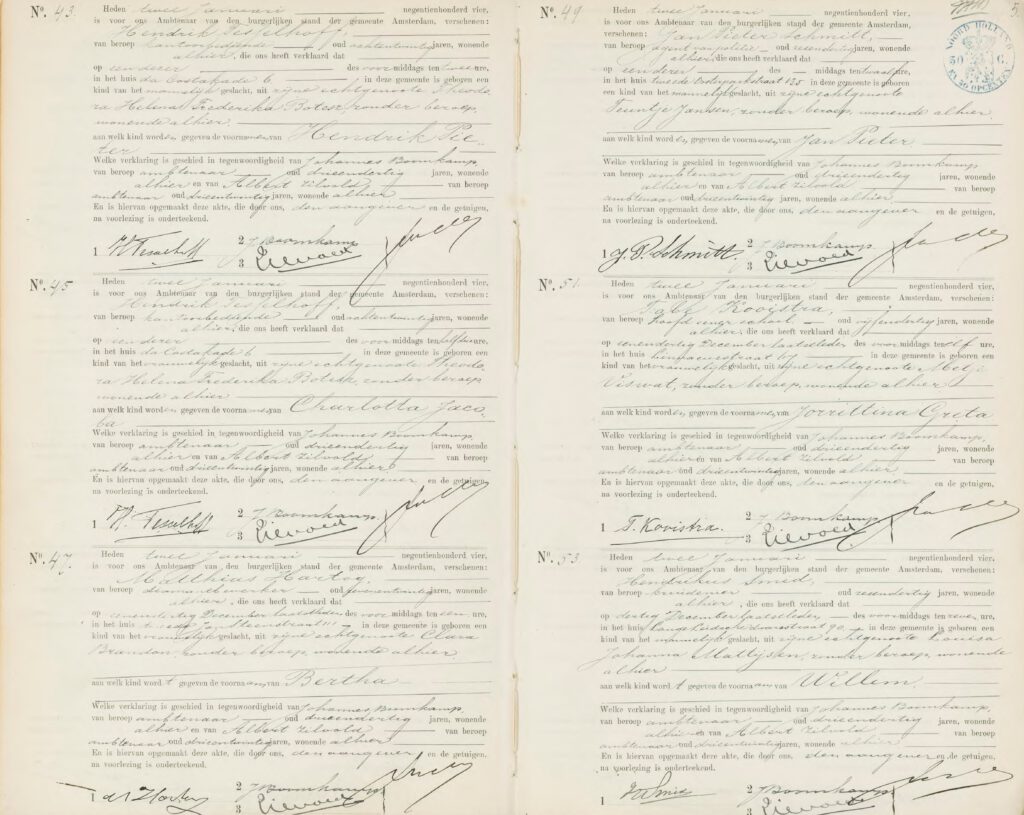 No. 43. Heden twee Januari negentienhonderd vier,
is voor ons Ambtenaar van den burgerlijken stand der gemeente Amsterdam, verschenen:
Hendrik Tesselhoff,
van beroep kantoorbediende oud achtentwintig jaren, wonende
alhier, die ons heeft verklaard dat
op des voormiddags ten twee ure,
in het huis da Costakade 6 in deze gemeente is geboren een
kind van het mannelijk geslacht, uit zijne echtgenoote Theodo
ra Helena Frederika zonder beroep,
wonende alhier
aan welk kind worden gegeven de voornamen van Hendrik Pie-
ter
Welke verklaring is geschied in tegenwoordigheid van Johannes Boomkamp,
van beroep ambtenaar oud drieendertig jaren, wonende
alhier en van Albert Zilvold van beroep
ambtenaar oud drieentwintig jaren, wonende alhier
En is hiervan opgemaakt deze akte, die door ons, den aangever en de getuigen,
na voorlezing is onderteekend.
1 H Tesselhoff 2 J Boomkamp
3 Zilvold
No. 45 Heden twee Januari negentienhonderd vier,
is voor ons Ambtenaar van den burgerlijken stand der gemeente Amsterdam, verschenen:
Hendrik Tesselhoff,
van beroep kantoorbediende oud achtentwintig jaren, wonende
alhier, die ons heeft verklaard dat
op des voormiddags ten ure,
in het huis da Costakade 6 in deze gemeente is geboren een
kind van het vrouwelijk geslacht, uit zijne echtgenoote Theodo
ra Helena Frederika zonder beroep
wonende alhier
aan welk kind worden gegeven de voornamen van Charlotta Jaco-
ba
Welke verklaring is geschied in tegenwoordigheid van Johannes Boomkamp,
van beroep ambtenaar oud drieendertig jaren, wonende
alhier en van Albert Zilvold van beroep
ambtenaar oud drieentwintig jaren, wonende alhier
En is hiervan opgemaakt deze akte, die door ons, den aangever en de getuigen,
na voorlezing is onderteekend.
1 H. Tesselhoff 2 J Boomkamp
3 Zilvold
No. 47. Heden twee Januari negentienhonderd vier,
is voor ons Ambtenaar van den burgerlijken stand der gemeente Amsterdam, verschenen:
Matthius Hartog,
van beroep diamantbewerker oud jaren, wonende
alhier, die ons heeft verklaard dat
op December laatstleden des voormiddags ten een ure,
in het huis in deze gemeente is geboren een
kind van het vrouwelijk geslacht, uit zijne echtgenoote Clara
Brandon, zonder beroep, wonende alhier
aan welk kind wordt gegeven de voornaam van Bertha
Welke verklaring is geschied in tegenwoordigheid van Johannes Boomkamp
van beroep ambtenaar oud drieendertig jaren, wonende
alhier en van Albert Zilvold van beroep
ambtenaar oud drieentwintig jaren, wonende alhier
En is hiervan opgemaakt deze akte, die door ons, den aangever en de getuigen,
na voorlezing is onderteekend.
1 2 J Boomkamp
3 Zilvold
5.
NOORD HOLLAND
50 C.
EN 38 OPCENTEN
No. 49 Heden twee Januari negentienhonderd vier,
is voor ons Ambtenaar van den burgerlijken stand der gemeente Amsterdam,
verschenen: Jan Pieter Schmitt,
van beroep agent van politie oud jaren, wonende
alhier, die ons heeft verklaard dat
op des middags ten twaalf ure,
in het huis tweede 125 in deze gemeente is geboren een
kind van het mannelijk geslacht, uit zijne echtgenoote
Teuntje Jansen, zonder beroep, wonende alhier,
aan welk kind worden gegeven de voornamen van Jan Pieter
Welke verklaring is geschied in tegenwoordigheid van Johannes Boomkamp
van beroep ambtenaar oud drieendertig jaren, wonende
alhier en van Albert Zilvold van beroep
ambtenaar oud drieentwintig jaren, wonende alhier
En is hiervan opgemaakt deze akte, die door ons, den aangever en de getuigen,
na voorlezing is onderteekend.
1 J. P. Schmitt. 2 J Boomkamp
3 Zilvold
No. 51. Heden twee Januari negentienhonderd vier,
is voor ons Ambtenaar van den burgerlijken stand der gemeente Amsterdam, verschenen:
Kooistra,
van beroep hoofd eener school oud vijfendertig jaren, wonende
alhier, die ons heeft verklaard dat
op eenendertig December laatstleden des voormiddags ten elf ure,
in het huis 67 in deze gemeente is geboren een
kind van het vrouwelijk geslacht, uit zijne echtgenoote
Viswat, zonder beroep, wonende alhier
aan welk kind worden gegeven de voornamen van Jorrittina Greta
Welke verklaring is geschied in tegenwoordigheid van Johannes Boomkamp,
van beroep ambtenaar oud drieendertig jaren, wonende
alhier en van Albert Zilvold van beroep
ambtenaar oud drieentwintig jaren, wonende alhier
En is hiervan opgemaakt deze akte, die door ons, den aangever en de getuigen,
na voorlezing is onderteekend.
1 T. Kooistra. 2 J Boomkamp
3 Zilvold
No. 53 Heden twee Januari negentienhonderd vier,
is voor ons Ambtenaar van den burgerlijken stand der gemeente Amsterdam, verschenen:
Hendrikus Smed,
van beroep kruidenier oud jaren, wonende
alhier, die ons heeft verklaard dat
op dertig December laatstleden des voormiddags ten ure,
in het huis 90 in deze gemeente is geboren een
kind van het mannelijk geslacht, uit zijne echtgenoote Louisa
Johanna Mattijsen, zonder beroep, wonende
alhier
aan welk kind wordt gegeven de voornaam van Willem.
Welke verklaring is geschied in tegenwoordigheid van Johannes Boomkamp,
van beroep ambtenaar oud drieendertig jaren, wonende
alhier en van Albert Zilvold van beroep
ambtenaar oud drieentwintig jaren, wonende alhier
En is hiervan opgemaakt deze akte, die door ons, den aangever en de getuigen,
na voorlezing is onderteekend.
1 2 J Boomkamp
3 Zilvold